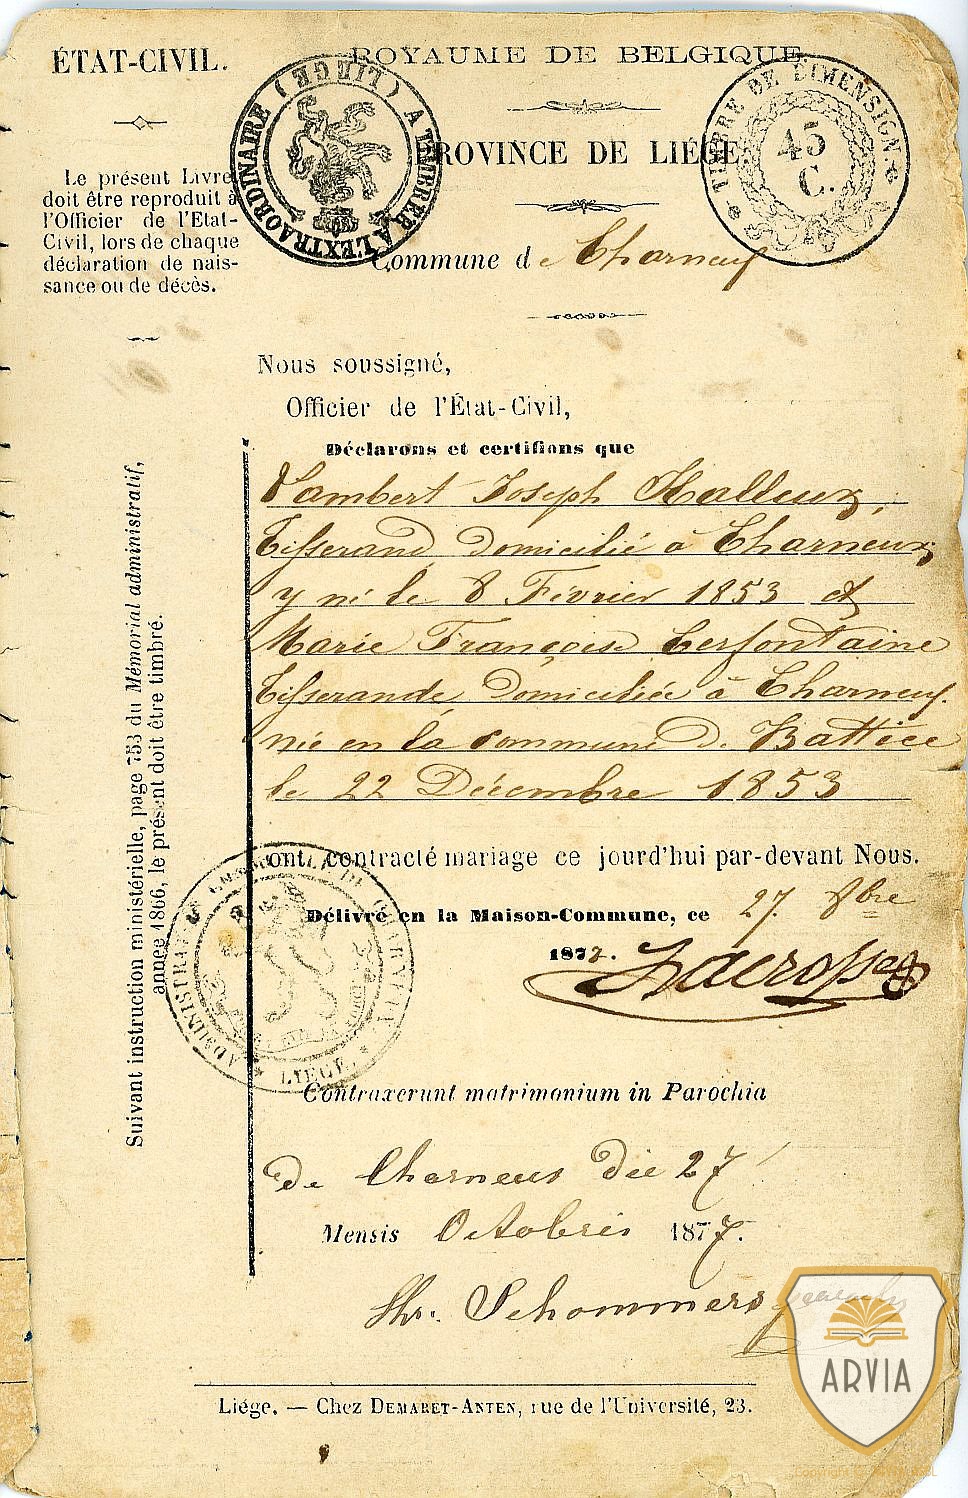 ÉTAT-CIVIL.
Le présent Livret
doit être reproduit à
l'Officier de l'Etat-
Civil, lors de chaque
déclaration de nais-
sance ou de décès.
ROYAUME DE BELGIQUE
A TIMBRER A L'EXTRAORDINAIRE (LIEGE)
TIMBRE DE DIMENSION
45
C.
PROVINCE DE LIÉGE
Commune de Charneux
Nous soussigné,
Officier de l'État-Civil,
Déclarons et certifions que
Lambert Joseph Halleux,
Tisserand domicilié à Charneux
y né le 8 Février 1853 et
Marie Françoise Cerfontaine
Tisserande, domiciliée à Charneux.
née en la commune de Battice
le 22 Décembre 1853
ont contracté mariage ce jourd'hui par-devant Nous.
Délivré en la Maison-Commune, ce 27 8bre
1877.
Suivant instruction ministérielle, page 753 du Mémorial administratif,
année 1866, le présent doit être timbré.
LIEGE
Contraxerunt matrimonium in Parochia
de Charneux die 27
Mensis Octobris 1877.
Schommers
Liége. — Chez DEMARET-ANTEN, rue de l'Université, 23.
ARVIA